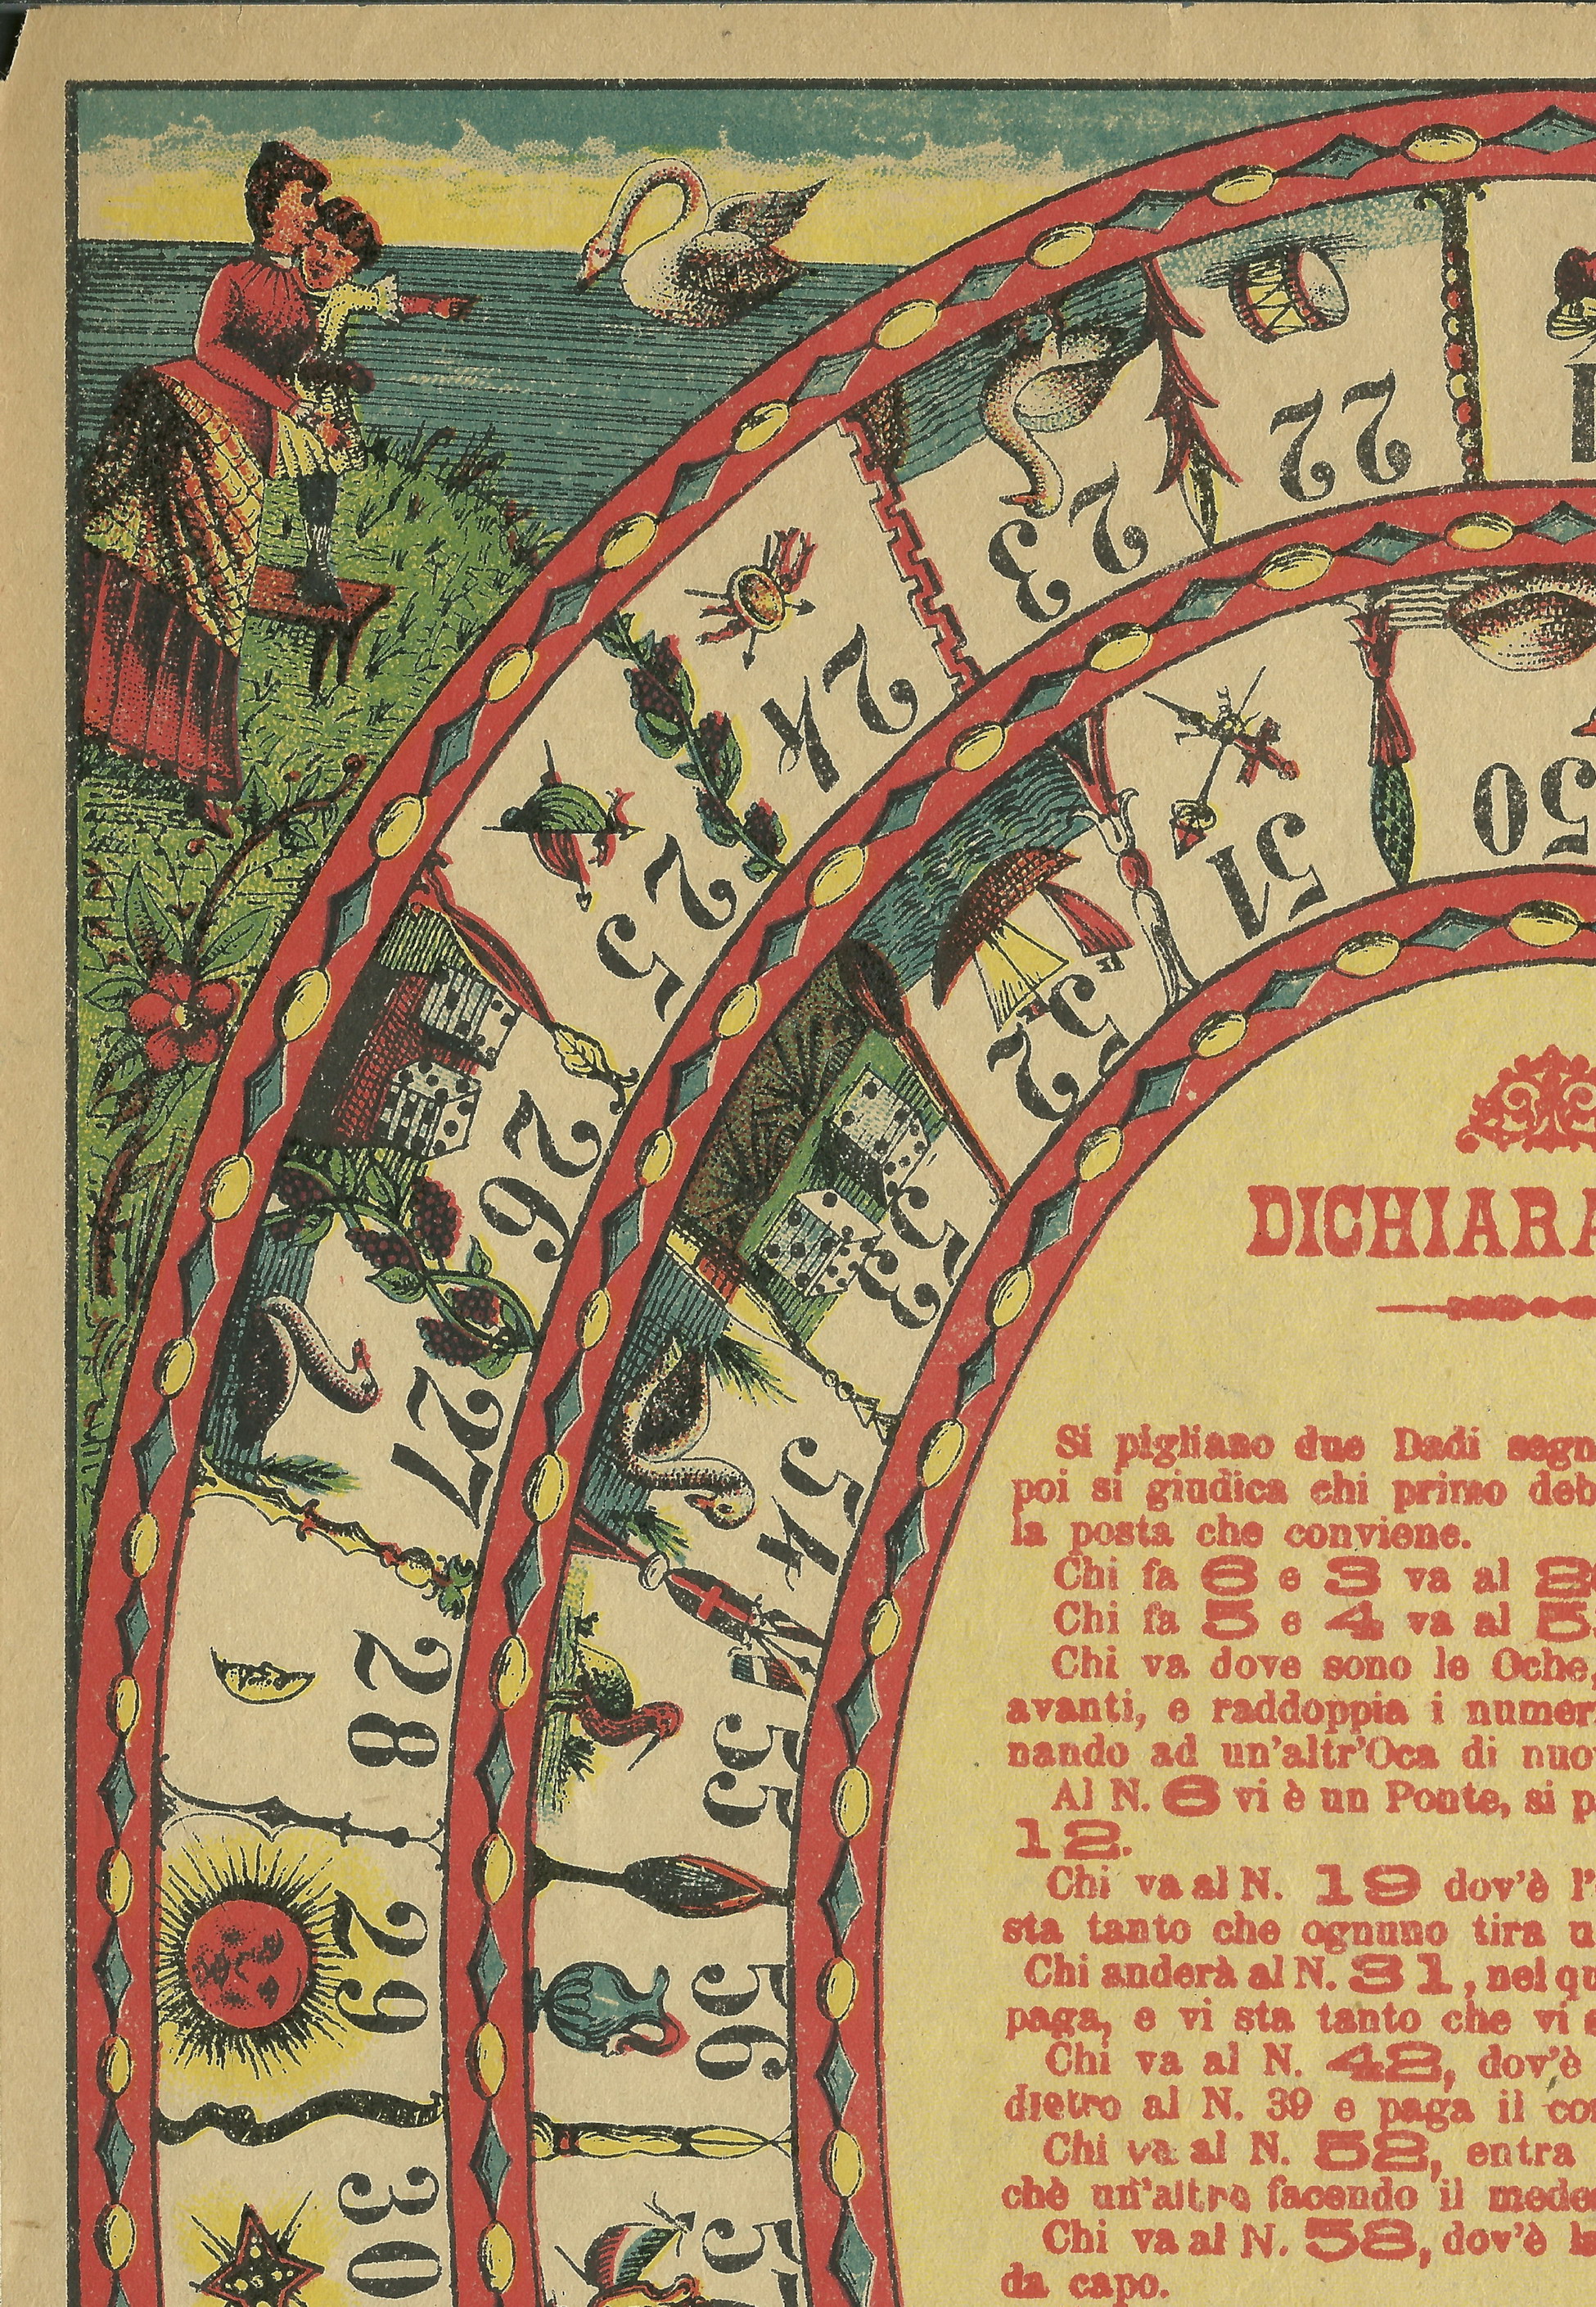 22
23
24
25
26
27
28
29
30
50
51
52
53
54
55
56
DICHIARA
Si pigliano due Dadi segn
poi si giudica chi primo deb
la posta che conviene.
Chi fa 6 e 3 va al 2
Chi fa 5 e 4 va al 5
Chi va dove sono le Oche,
avanti, e raddoppia i numer
nando ad un'altr'Oca di nuo
Al N. 6 vi è un Ponte, si p
12.
Chi va al N. 19 dov'è l'
sta tanto che ognuno tira u
Chi anderà al N. 31, nel qu
paga, e vi sta tanto che vi
Chi va al N. 42, dov'è
dietro al N. 39 e paga il co
Chi va al N. 52, entra
chè un'altro facendo il mede
Chi va al N. 58, dov'è
da capo.